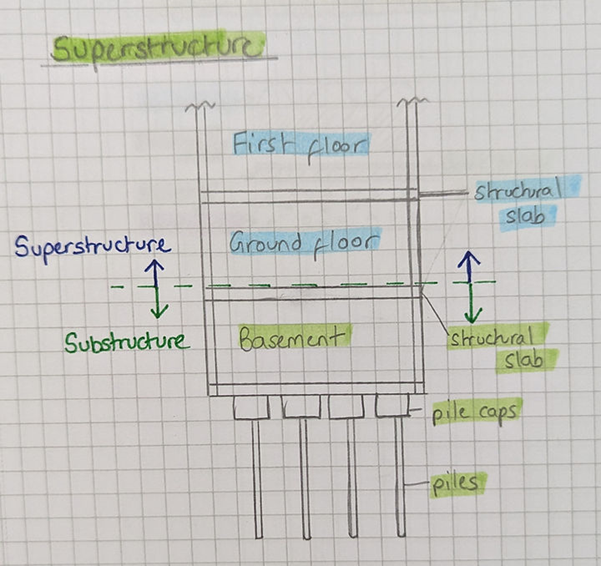 Superstructure
First floor
structural
slab
Superstructure
Ground floor
Substructure
Basement
structural
slab
pile caps
piles